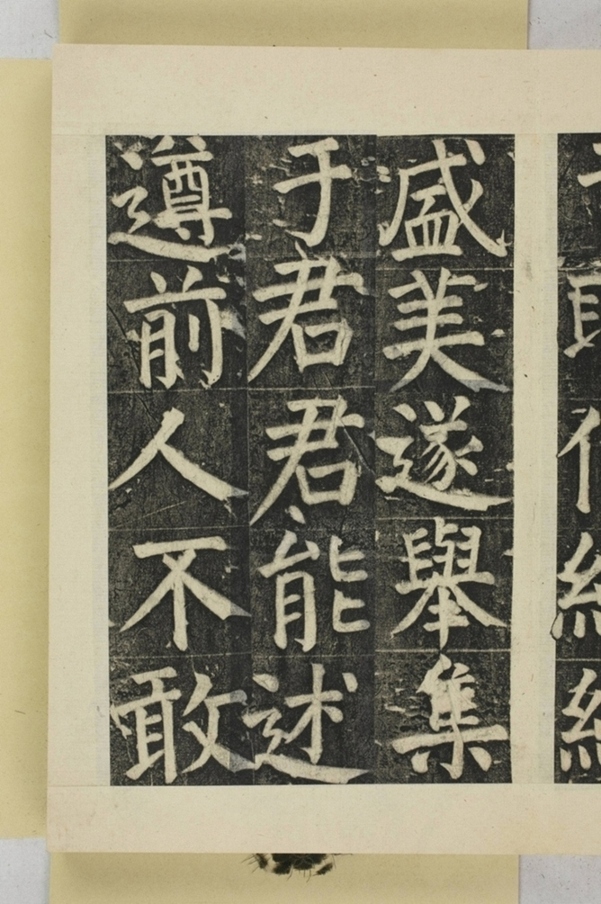 盛美遂舉集
于君君能述
遵前人不敢